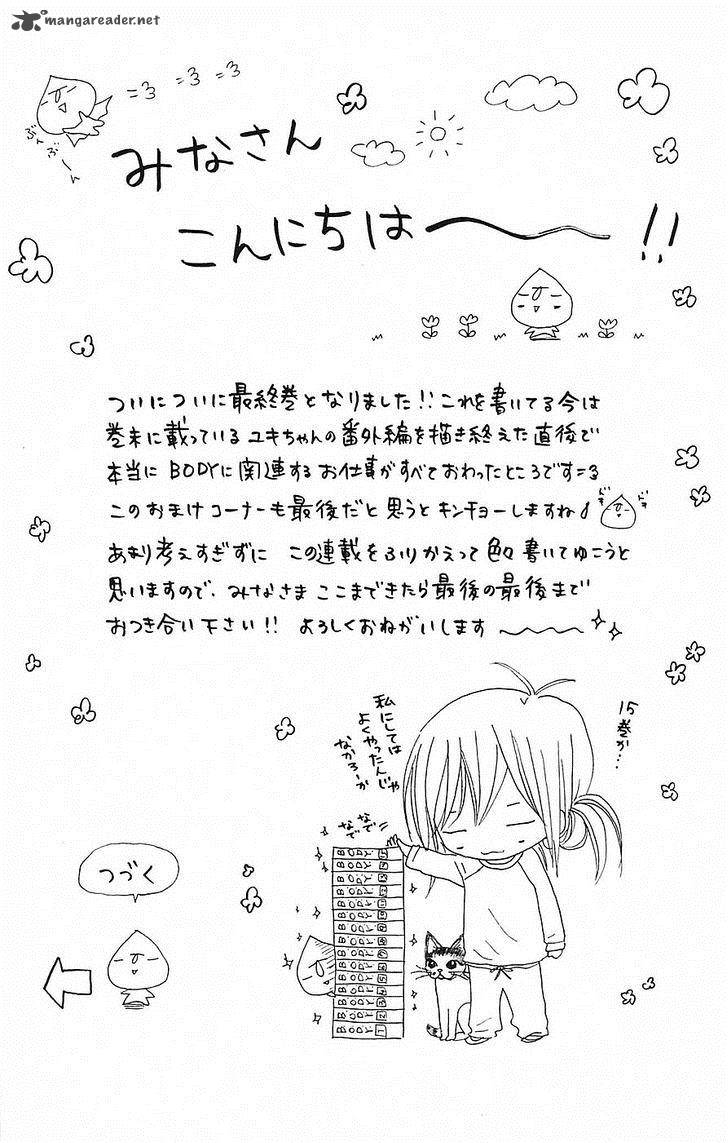 mangareader.net
=3 =3 =3
ぶん
ぶーん
みなさん
こんにちは〜!!
ついについに最終巻となりました!!これを書いてる今は
巻末に載っているユキちゃんの番外編を描き終えた直後で
本当にBODYに関連するお仕事がすべておわったところです=3
このおまけコーナーも最後だと思うとキンチョーしますね♪
ドキ ドキ
あまり考えすぎずに この連載をふりかえって色々書いてゆこうと
思いますので、みなさま ここまできたら最後の最後まで
おつき合い下さい!! よろしくおねがいします〜
15巻か…
私にしては
よくやったんじゃ
なかろーか
なで
なで
つづく
BODY
BODY
BODY
BODY
BODY
BODY
BODY
BODY
BODY
BODY
BODY
BODY
BODY 3
BODY 2
BODY 1